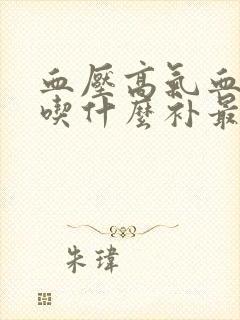 血壓高氣血
喫什麼补最
朱瑋